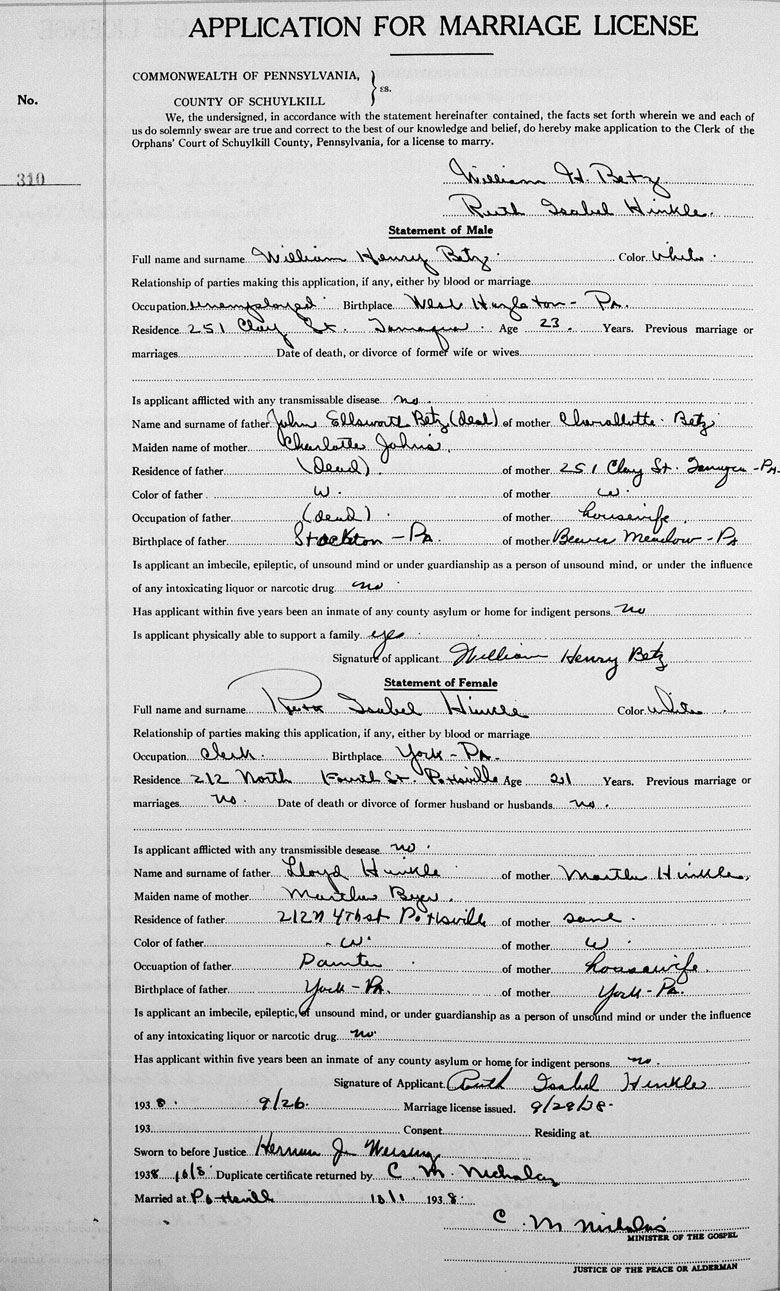 APPLICATION FOR MARRIAGE LICENSE
COMMONWEALTH OF PENNSYLVANIA,
ss.
No.
COUNTY OF SCHUYLKILL
We, the undersigned, in accordance with the statement hereinafter contained, the facts set forth wherein we and each of
us do solemnly swear are true and correct to the best of our knowledge and belief, do hereby make application to the Clerk of the
Orphans' Court of Schuylkill County, Pennsylvania, for a license to marry.
310
William H. Betz
Ruth Isabel Hinkle.
Statement of Male
Full name and surname William Henry Betz Color White
Relationship of parties making this application, if any, either by blood or marriage
Occupation unemployed Birthplace West Hazleton - Pa.
Residence 251 Clay St. Tamaqua Age 23. Years. Previous marriage or
marriages Date of death, or divorce of former wife or wives
Is applicant afflicted with any transmissable disease no.
Name and surname of father John Ellsworth Betz (dead) of mother Charollotte Betz
Maiden name of mother Charlotte Johns
Residence of father (dead) of mother 251 Clay St. -Pa.
Color of father W. of mother W.
Occupation of father (dead) of mother housewife.
Birthplace of father Stockton - Pa. of mother Beaver Meadow - Pa
Is applicant an imbecile, epileptic, of unsound mind or under guardianship as a person of unsound mind, or under the influence
of any intoxicating liquor or narcotic drug. no
Has applicant within five years been an inmate of any county asylum or home for indigent persons. no
Is applicant physically able to support a family yes
Signature of applicant William Henry Betz
Statement of Female
Full name and surname Ruth Isabel Hinkle Color White
Relationship of parties making this application, if any, either by blood or marriage
Occupation Clerk. Birthplace York - Pa.
Residence 212 North Fourth St. Pottsville Age 21 Years. Previous marriage or
marriages no Date of death or divorce of former husband or husbands no.
Is applicant afflicted with any transmissible desease no.
Name and surname of father Lloyd Hinkle of mother Martha Hinkle,
Maiden name of mother Martha
Residence of father 212 N 4th st Pottsville of mother same.
Color of father W. of mother W
Occuaption of father Painter of mother housewife.
Birthplace of father York - Pa. of mother York - Pa.
Is applicant an imbecile, epileptic, of unsound mind, or under guardianship as a person of unsound mind or under the influence
of any intoxicating liquor or narcotic drug no
Has applicant within five years been an inmate of any county asylum or home for indigent persons. no.
Signature of Applicant. Ruth Isabel Hinkle
1938. 9/26. Marriage license issued. 9/29/38.
193 Consent. Residing at
Sworn to before Justice Herman J.
1938 10/8 Duplicate certificate returned by C. M. Nicholas
Married at Pottsville 10/1 1938.
C. M Nicholas
MINISTER OF THE GOSPEL
JUSTICE OF THE PEACE OR ALDERMAN